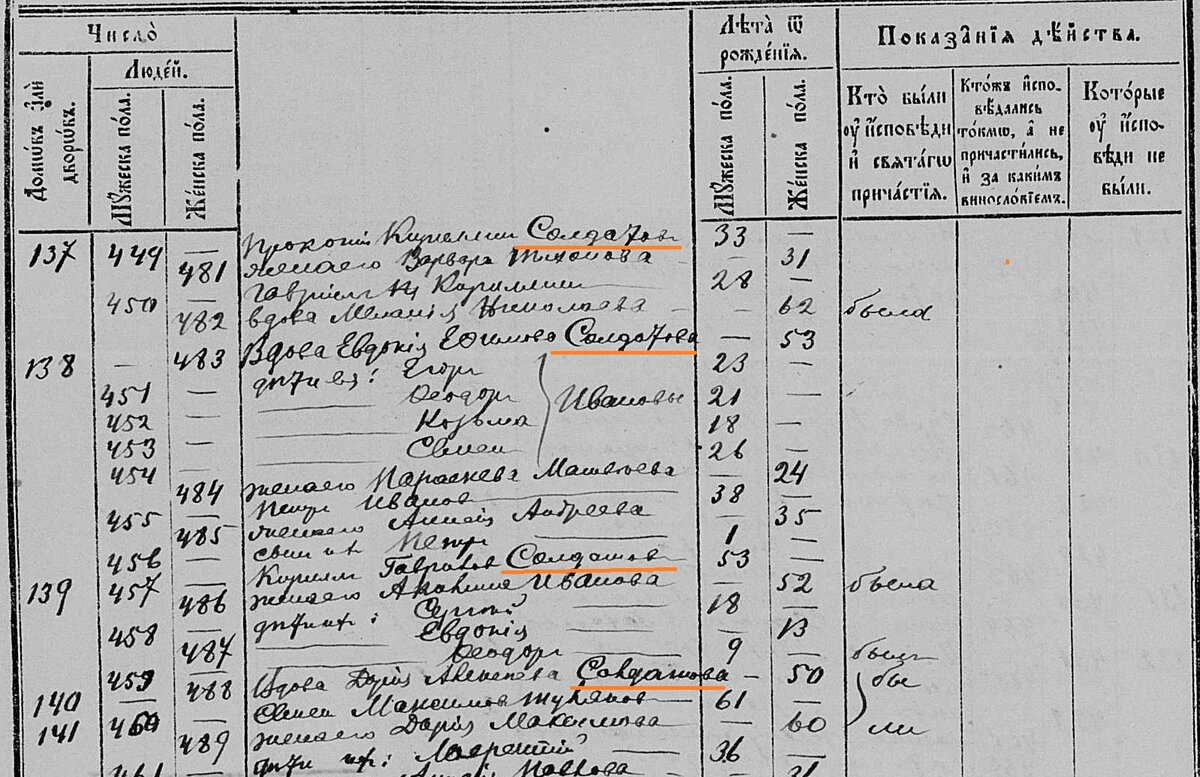 Число̀
Людéй.
Домѡвъ и҆лѝ дворѡвъ.
Мꙋжеска по́ла.
Же́нска по́ла.
Лѣта̀ ѿ рожде́нїѧ.
Мꙋжеска по́ла.
Же́нска по́ла.
Показа̑нїѧ дѣ́йства.
Кто̀ бы́ли
ᲂу҆ и҆сповѣди
и҆ свѧта́гѡ
прича́стїѧ.
Кто́жъ и҆спо-
вѣ́дались
то́кмѡ, а҆ не
причасти́лись,
и҆ за каки́мъ
винословїемъ.
Кото́рые
ᲂу҆ и҆спо-
вѣди не
бы́ли.
137 449 — Прокопій Кирилловъ Солдатовъ 33 —
— 481 жена его Варвара Тихонова — 31
450 — Гавріилъ Кирилловъ 28 —
— 482 вдова Меланія Николаева — 62 была
138 — 483 Вдова Евдокія Ефимова Солдатова — 53
451 — дѣти ея: Егоръ 23 —
452 — Ѳеодоръ Ивановы 21 —
453 — Козьма 18 —
454 — Семенъ 26 —
— 484 жена его Параскева Матвѣева — 24
455 — Петръ Ивановъ 38 —
— 485 жена его Андреева — 35
456 — сынъ ихъ Петръ 1 —
139 457 — Кириллъ Гавриловъ Солдатовъ 53 —
— 486 жена его Акилина Иванова — 52 была
458 — дѣти ихъ: Сергій 18 —
— 487 Евдокія — 13
459 — Ѳеодоръ 9 — былъ
140 — 488 Вдова Дарія Алексеева Солдатова — 50 бы
141 460 — Семенъ Максимовъ 61 —
— 489 жена его Дарія Максимова — 60 ли
461 — дѣти ихъ: Лаврентій 36 —
Павлова